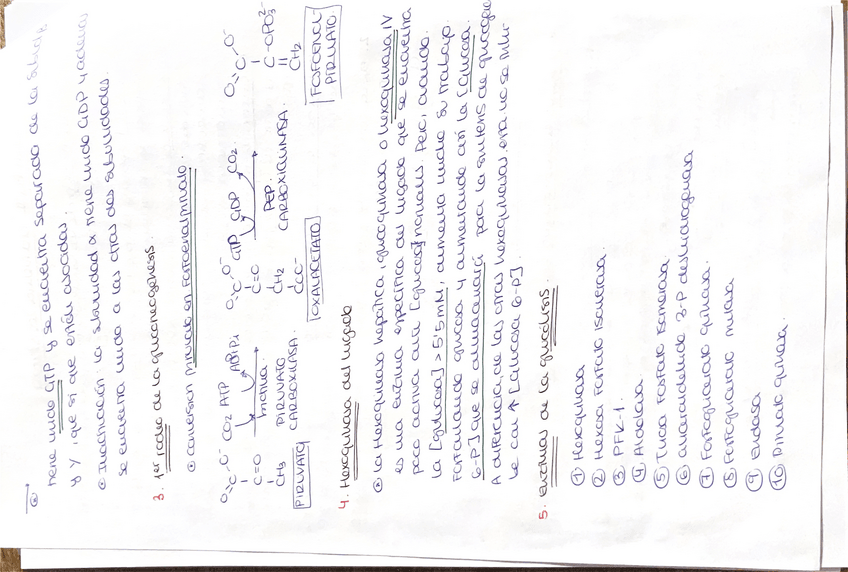 tiene unido GTP y se encuentra separado de la subunid.
γ y, que si que están asociadas.
Inactivación: la subunidad α tiene unido GDP y además
se encuentra unido a las otras dos subunidades.
3. 1er paso de la gluconeogénesis.
conversión piruvato en Fosfoenolpiruvato.
CO2 ATP ADP+Pi
GTP GDP CO2
biotina
PIRUVATO CARBOXILASA.
PEP CARBOXIQUINASA.
PIRUVATO
OXALACETATO
FOSFOENOL-PIRUVATO
4. Hexoquinasa del hígado
La Hexoquinasa hepática, glucoquinasa o hexoquinasa IV
es una enzima específica del hígado que se encuentra
poco activa a la [glucosa] normales. Pero, cuando
la [glucosa] > 5'5 mM, aumenta mucho su trabajo.
Fosforilando glucosa y aumentando así la [glucosa
6-P] que se almacenará para la síntesis de glucógeno
A diferencia de las otras hexoquinasas, esta no se inhi-
be con ↑ [glucosa 6-P].
5. enzimas de la glucólisis.
① Hexoquinasa
② Hexosa Fosfato isomerasa.
③ PFK-1.
④ Aldolasa.
⑤ Triosa Fosfato isomerasa
⑥ Gliceraldehido 3-P deshidrogenasa
⑦ Fosfoglicerato quinasa.
⑧ Fosfoglicerato mutasa
⑨ Enolasa
⑩ Piruvato quinasa.